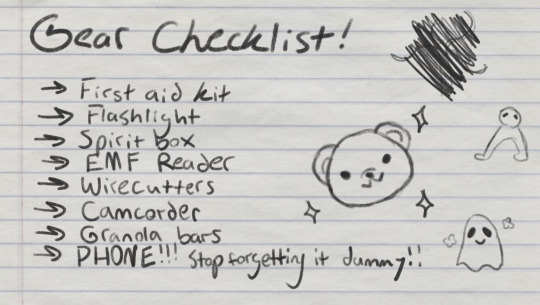 Gear Checklist!
→ First aid kit
→ Flashlight
→ Spirit box
→ EMF Reader
→ Wirecutters
→ Camcorder
→ Granola bars
→ PHONE!!! Stop forgetting it dummy!!